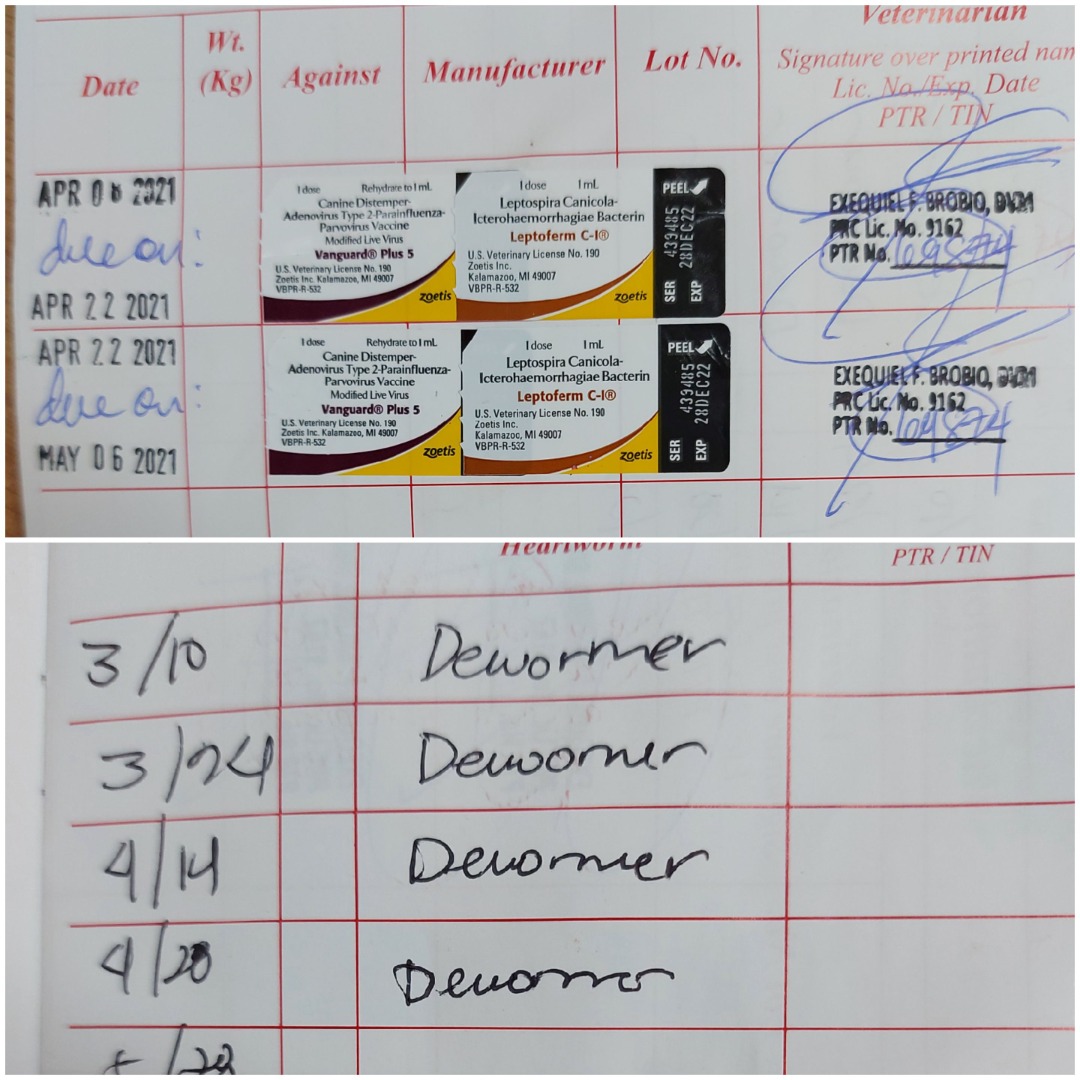 Veterinarian
Date Wt. (Kg) Against Manufacturer Lot No. Signature over printed nam
Lic. No./Exp. Date
PTR / TIN
APR 06 2021
due on:
APR 22 2021
1 dose Rehydrate to 1 mL
Canine Distemper-
Adenovirus Type 2-Parainfluenza-
Parvovirus Vaccine
Modified Live Virus
Vanguard® Plus 5
U.S. Veterinary License No. 190
Zoetis Inc. Kalamazoo, MI 49007
VBPR-R-532
zoetis
1 dose 1 mL
Leptospira Canicola-
Icterohaemorrhagiae Bacterin
Leptoferm C-I®
U.S. Veterinary License No. 190
Zoetis Inc.
Kalamazoo, MI 49007
VBPR-R-532
zoetis
PEEL
SER 439485
EXP 28DEC22
EXEQUIEL F. BROBIO, DVM
PRC Lic. No. 9162
PTR No.
APR 22 2021
due on:
MAY 06 2021
1 dose Rehydrate to 1 mL
Canine Distemper-
Adenovirus Type 2-Parainfluenza-
Parvovirus Vaccine
Modified Live Virus
Vanguard® Plus 5
U.S. Veterinary License No. 190
Zoetis Inc. Kalamazoo, MI 49007
VBPR-R-532
zoetis
1 dose 1 mL
Leptospira Canicola-
Icterohaemorrhagiae Bacterin
Leptoferm C-I®
U.S. Veterinary License No. 190
Zoetis Inc.
Kalamazoo, MI 49007
VBPR-R-532
zoetis
PEEL
SER 439485
EXP 28DEC22
EXEQUIEL F. BROBIO, DVM
PRC Lic. No. 9162
PTR No.
Heartworm PTR / TIN
3/10 Dewormer
3/24 Dewormer
4/14 Dewormer
4/28 Dewormer